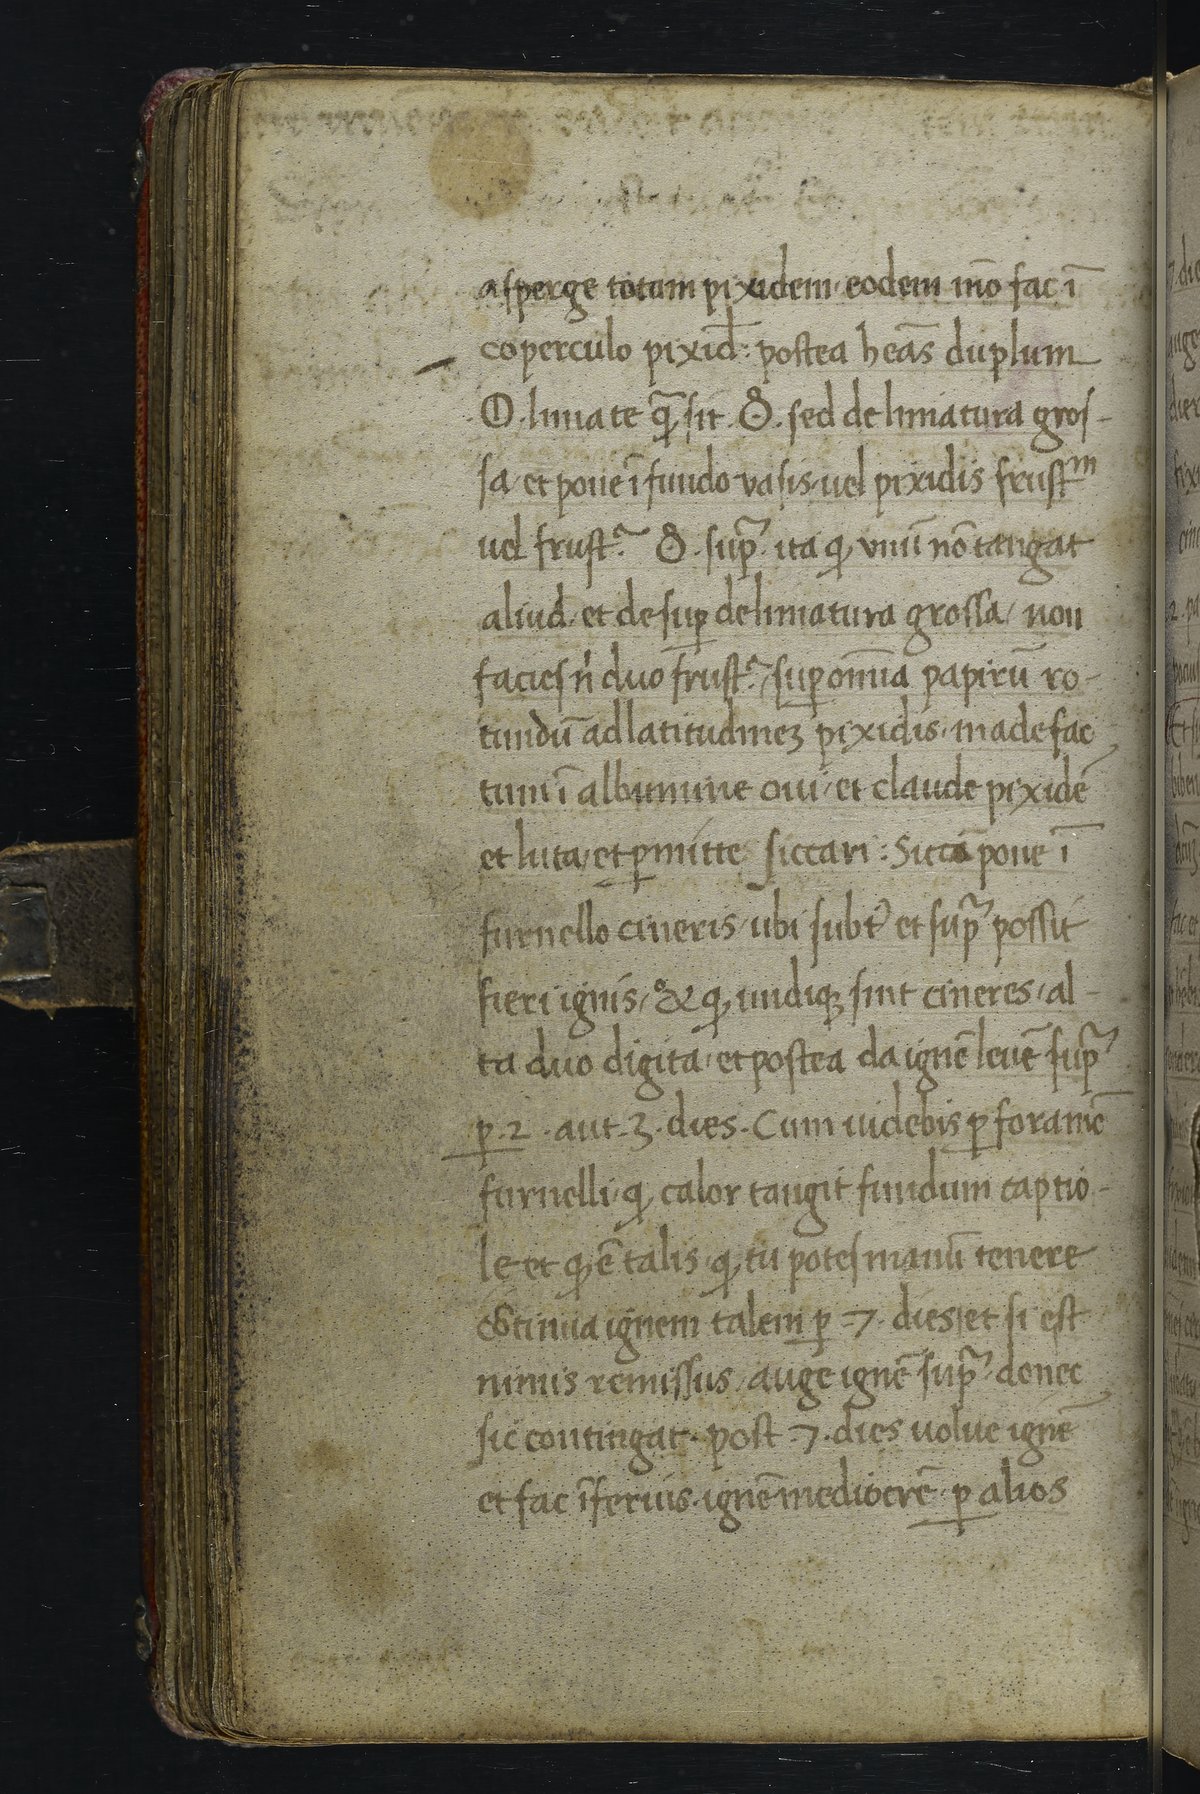 asperge totam pixidem. eodem mō fac ī
coperculo pixid̄: postea heās duplum
☉. limate q̄ sit ☿. sed de limatura gros-
sa. et pone ī fundo vasis uel pixidis frustᵐ
uel frustᵃ. ☿. supᵃ. ita ꝙ vnū nō tangat
aliud. et de suꝑ de limatura grossa. non
facies n̄ duo frustᵃ. suꝑ omnīa papirū ro-
tundū ad latitudineꝫ pixidis. madefac
tum ī albumine oui. et claude pixidē
et luta. et ꝑmitte siccari: Siccā pone ī
furnello cineris. ubi subt᾽ et supᵃ possit
fieri ignis. & ꝙ undiqꝫ sint cineres. al-
ta duo digita. et postea da ignē leuē supᵃ
ꝑ .2. aut .3. dies. Cum uidebis ꝑ foramē
furnelli. ꝙ calor tangit fundum captio-
le et ꝙ ē talis. ꝙ tu potes manū tenere
ↄ̄tinua ignem talem ꝑ 7. dies. et si est
nimis remissus. auge ignē supᵃ. donec
sic contingat. post .7. dies uolue ignē
et fac īferius. ignē mediocrē. ꝑ alios